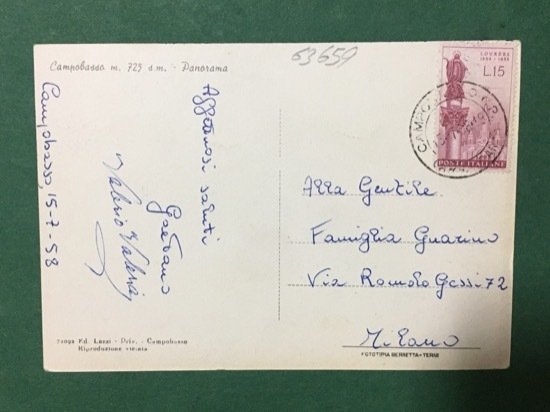 Campobasso m. 725 s.m. - Panorama
63659
Campobasso, 15-7-58
Affettuosi saluti
Gaetano
Valerio Valeria
LOURDES
1858 - 1958
L.15
POSTE ITALIANE
CAMPOBASSO
Alla Gentile
Famiglia Guarino
Via Romolo Gessi 72
Milano
Ed. Lazzi - Priv. - Campobasso
Riproduzione vietata
FOTOTIPIA BERRETTA - TERNI